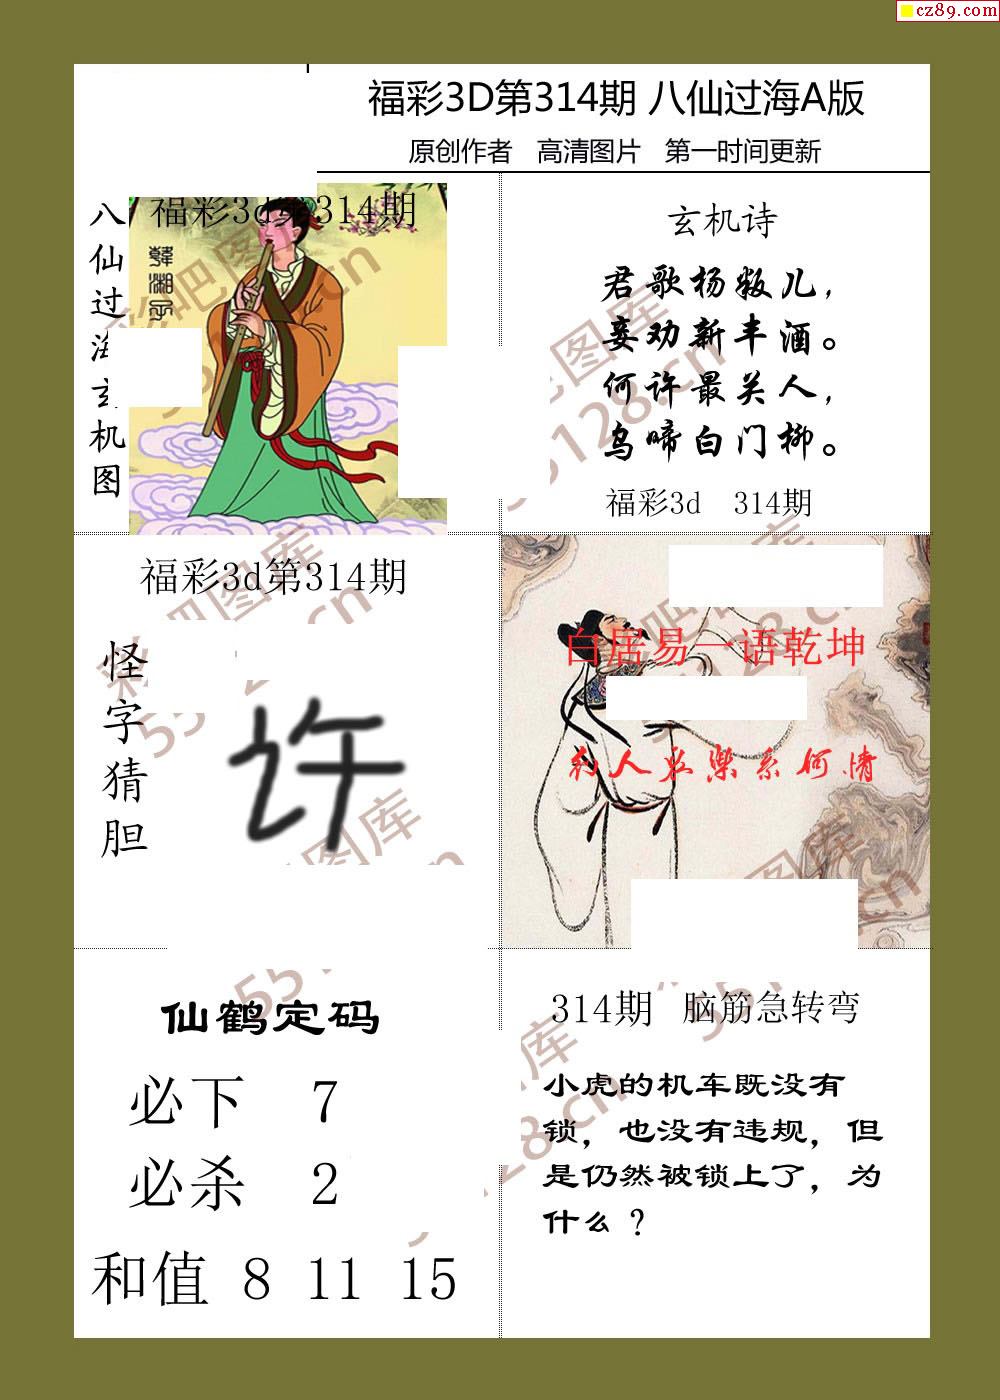 cz89.com
福彩3D第314期 八仙过海A版
原创作者 高清图片 第一时间更新
八仙过海玄机图
福彩3d第314期
韓湘子
玄机诗
君歌杨叛儿，
妾劝新丰酒。
何许最关人，
乌啼白门柳。
福彩3d 314期
福彩3d第314期
怪字猜胆
许
白居易一语乾坤
行人哀乐系何情
仙鹤定码
必下 7
必杀 2
和值 8 11 15
314期 脑筋急转弯
小虎的机车既没有
锁，也没有违规，但
是仍然被锁上了，为
什么？